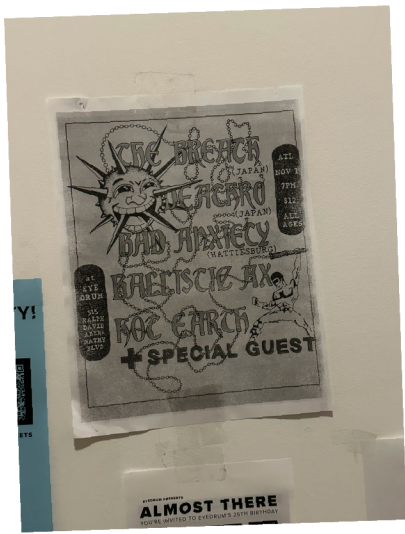 THE BREATH
(JAPAN)
DEATHRO
(JAPAN)
BAD ANXIETY
(HATTIESBURG)
BALLISTIC AX
ROT EARTH
+ SPECIAL GUEST
ATL
NOV
7PM
$12
ALL
AGES
AT
EYE
DRUM
515
RALPH
DAVID
ABER
NATHY
BLVD
TY!
ETS
EYEDRUM PRESENTS
ALMOST THERE
YOU'RE INVITED TO EYEDRUM'S 25TH BIRTHDAY